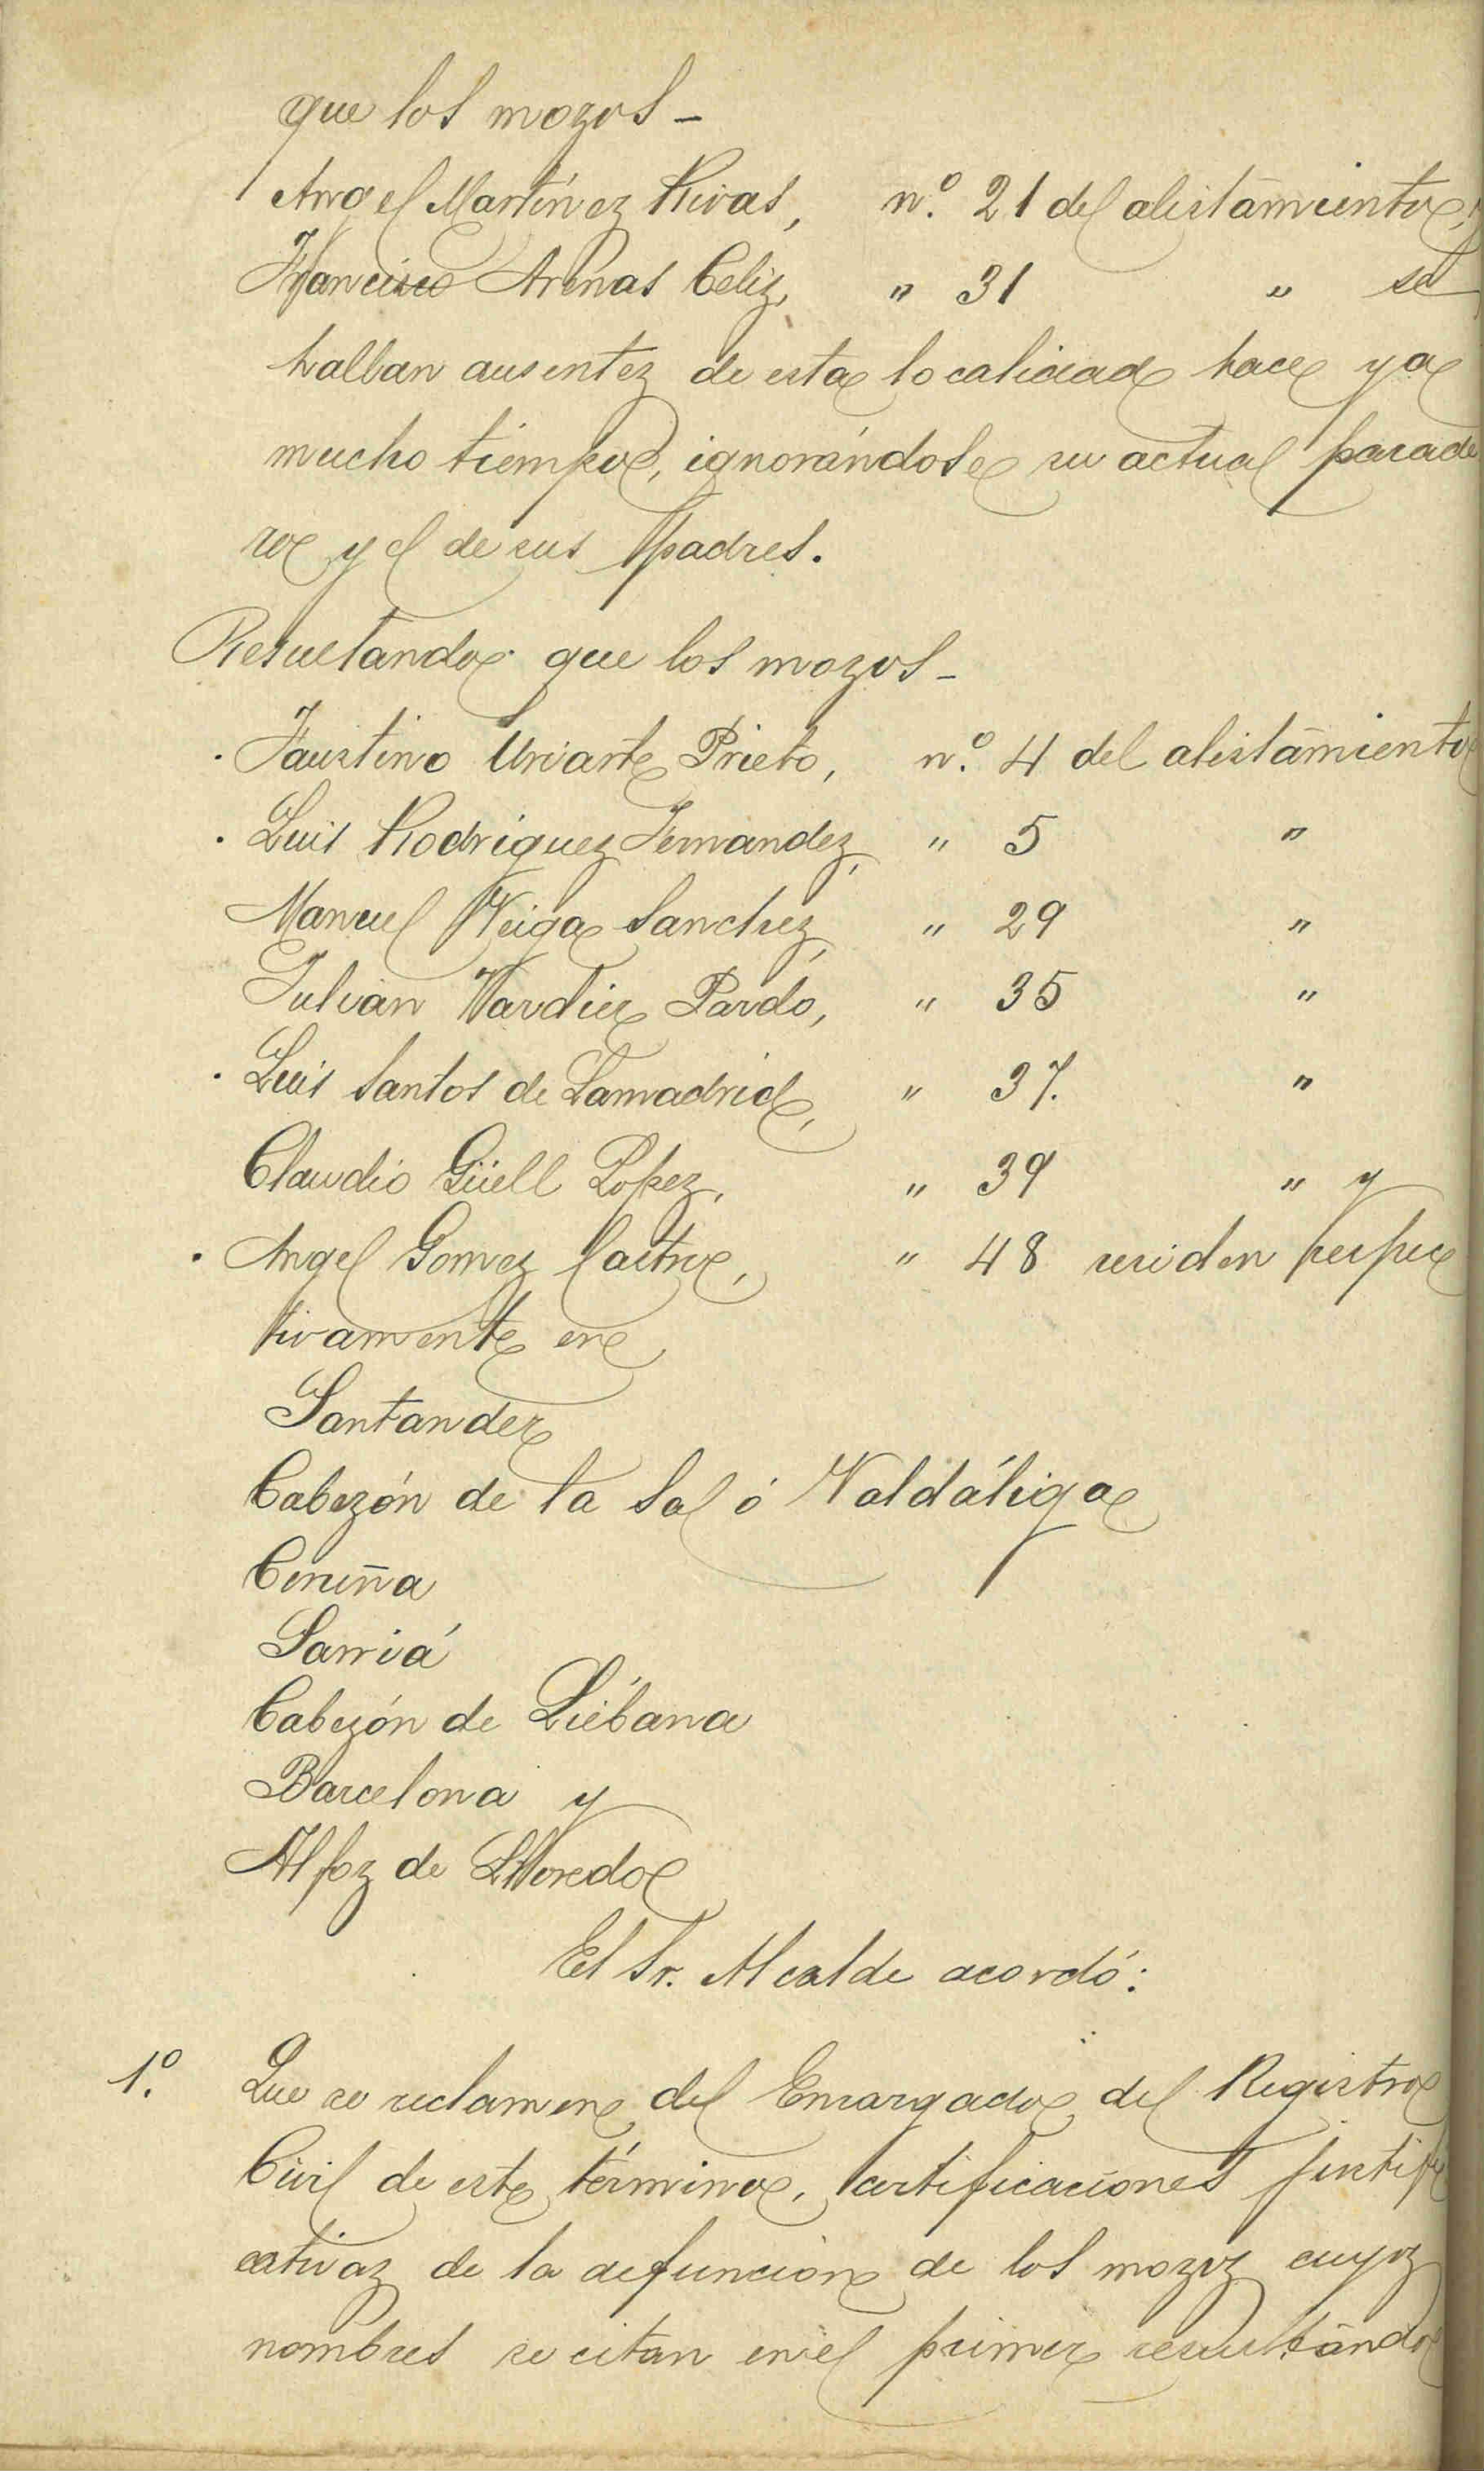 que los mozos -
Angel Martínez Rivas, n.º 21 del alistamiento,
Francisco Arenas Celis, " 31 " se
hallan ausentes de esta localidad hace ya
mucho tiempo, ignorándose su actual parade
ro y el de sus padres.
Resultando que los mozos -
. Faustino Uriarte Prieto, n.º 4 del alistamiento
. Luis Rodriguez Fernandez, " 5 "
Manuel Veiga Sanchez, " 29 "
Julian Vardier Pardo, " 35 "
. Luis Santos de Lamadrid, " 37. "
Claudio Güell Lopez, " 39 " y
. Angel Gomez Castro, " 48 residen respec
tivamente en
Santander
Cabezón de la Sal ó Valdáliga
Coruña
Sarriá
Cabezón de Liébana
Barcelona y
Alfoz de Lloredo
El Sr. Alcalde acordó:
1.º Que se reclamen del Encargado del Registro
Civil de este término, certificaciones justifi
cativas de la defunción de los mozos cuyos
nombres se citan en el primer resultando